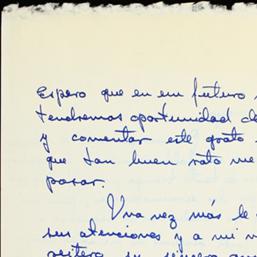 Espero que en em futuro
tendremos oportunidad de
y comentar este grato
que tan buen rato me
pasar.
Una vez más le
sus atenciones y a mi
reitero su